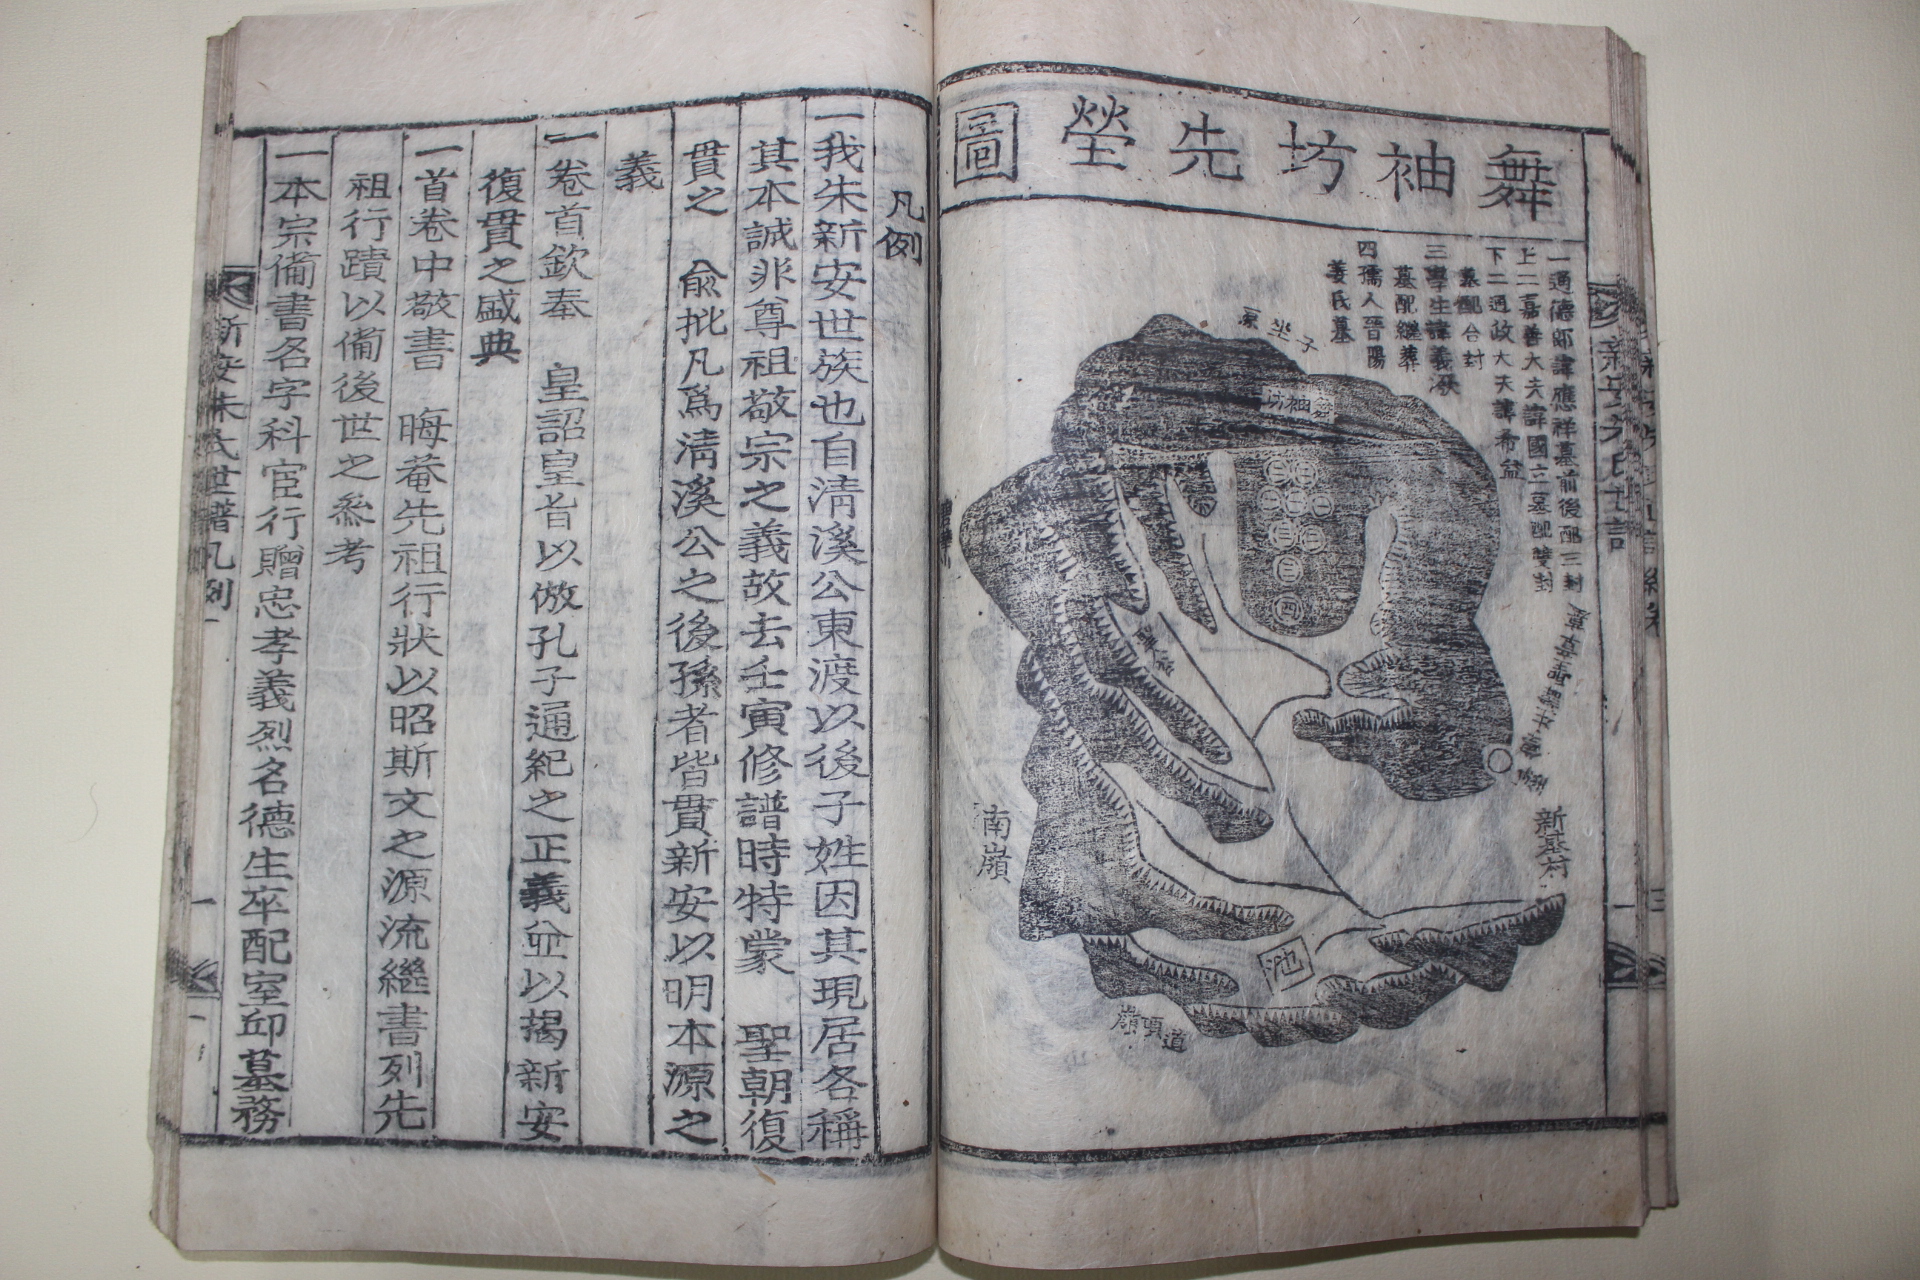 舞袖坊先塋圖
一通德郞諱應祥墓前後配三封
上二嘉善大夫諱國立墓配雙封
下二通政大夫諱希益
墓配合封
三學生諱義
墓配繼葬
四孺人晉陽
姜氏墓
子坐
舞袖坊
新基村
南嶺
池
道項嶺
凡例
一我朱新安世族也自淸溪公東渡以後子姓因其現居各稱
其本誠非尊祖敬宗之義故去壬寅修譜時特蒙 聖朝復
貫之 兪批凡爲淸溪公之後孫者皆貫新安以明本源之
義
一卷首欽奉 皇詔皇旨以倣孔子通紀之正義並以揭新安
復貫之盛典
一首卷中敬書 晦菴先祖行狀以昭斯文之源流繼書列先
祖行蹟以備後世之參考
一本宗備書名字科宦行贈忠孝義烈名德生卒配室邱墓務
新安朱氏世譜凡例 一